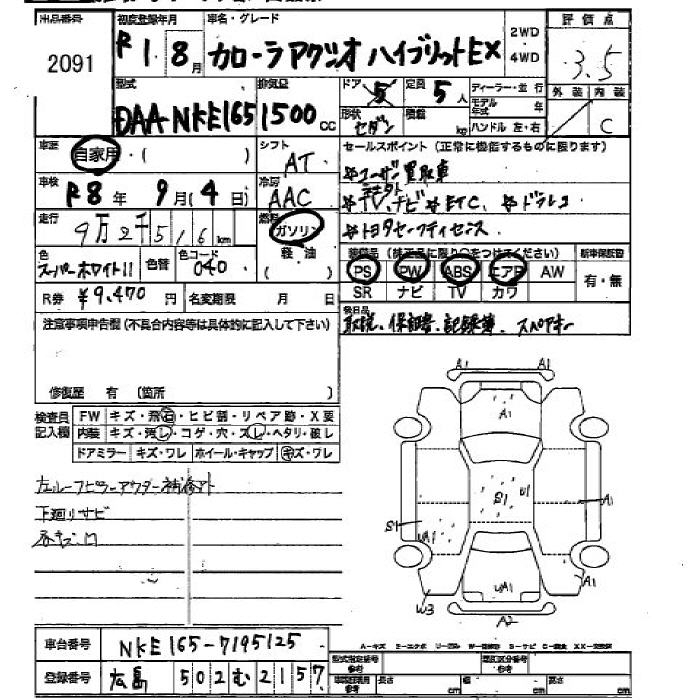 出品番号 初度登録年月 車名・グレード 評価点
2091 R1.8月 カローラアクシオ ハイブリットEX 2WD・4WD 3.5
型式 排気量 ドア 定員 ディーラー・並行 外装 内装
DAA-NKE165 1500cc 5 5人 モデル年式 年 C
形状 セダン 積載 kg ハンドル 左・右
車歴 自家用・( ) シフト AT セールスポイント (正常に機能するものに限ります)
車検 R8年9月(4日) 冷房 AAC ☆ユーザー買取車
☆TV.ナビ ☆ETC. ☆ドラレコ
走行 9万2千516km 燃料 ガソリン 軽油 ( ) ☆トヨタセーフティセンス
色 スーパーホワイトII 色替 色コード 040 装備品 (純正品に限り○をつけてください) 新車保証書
PS PW ABS エアB AW 有・無
R券 ¥9.470円 名変期限 月 日 SR ナビ TV カワ
注意事項申告欄(不具合内容等は具体的に記入して下さい) 後日品
取説、保証書、記録簿、スペアキー
修復歴 有 (箇所 )
検査員記入欄 FW キズ・飛石・ヒビ割・リペア跡・X要
内装 キズ・汚レ・コゲ・穴・スレ・ヘタリ・破レ
ドアミラー キズ・ワレ ホイール・キャップ キズ・ワレ
左ルーフピラーアウター補修アト
下廻りサビ
A1 A1
A1
S1 U1 A1
S1 UA1
UA1 A1
W3 A2
車台番号 NKE165-7195125
登録番号 広島 502 む 2157
A-キズ E-エクボ U-凹み W-補修跡 S-サビ C-腐食 XX-交換済
型式指定番号 参考 類別区分番号 参考
長さ cm 幅 cm 高さ cm